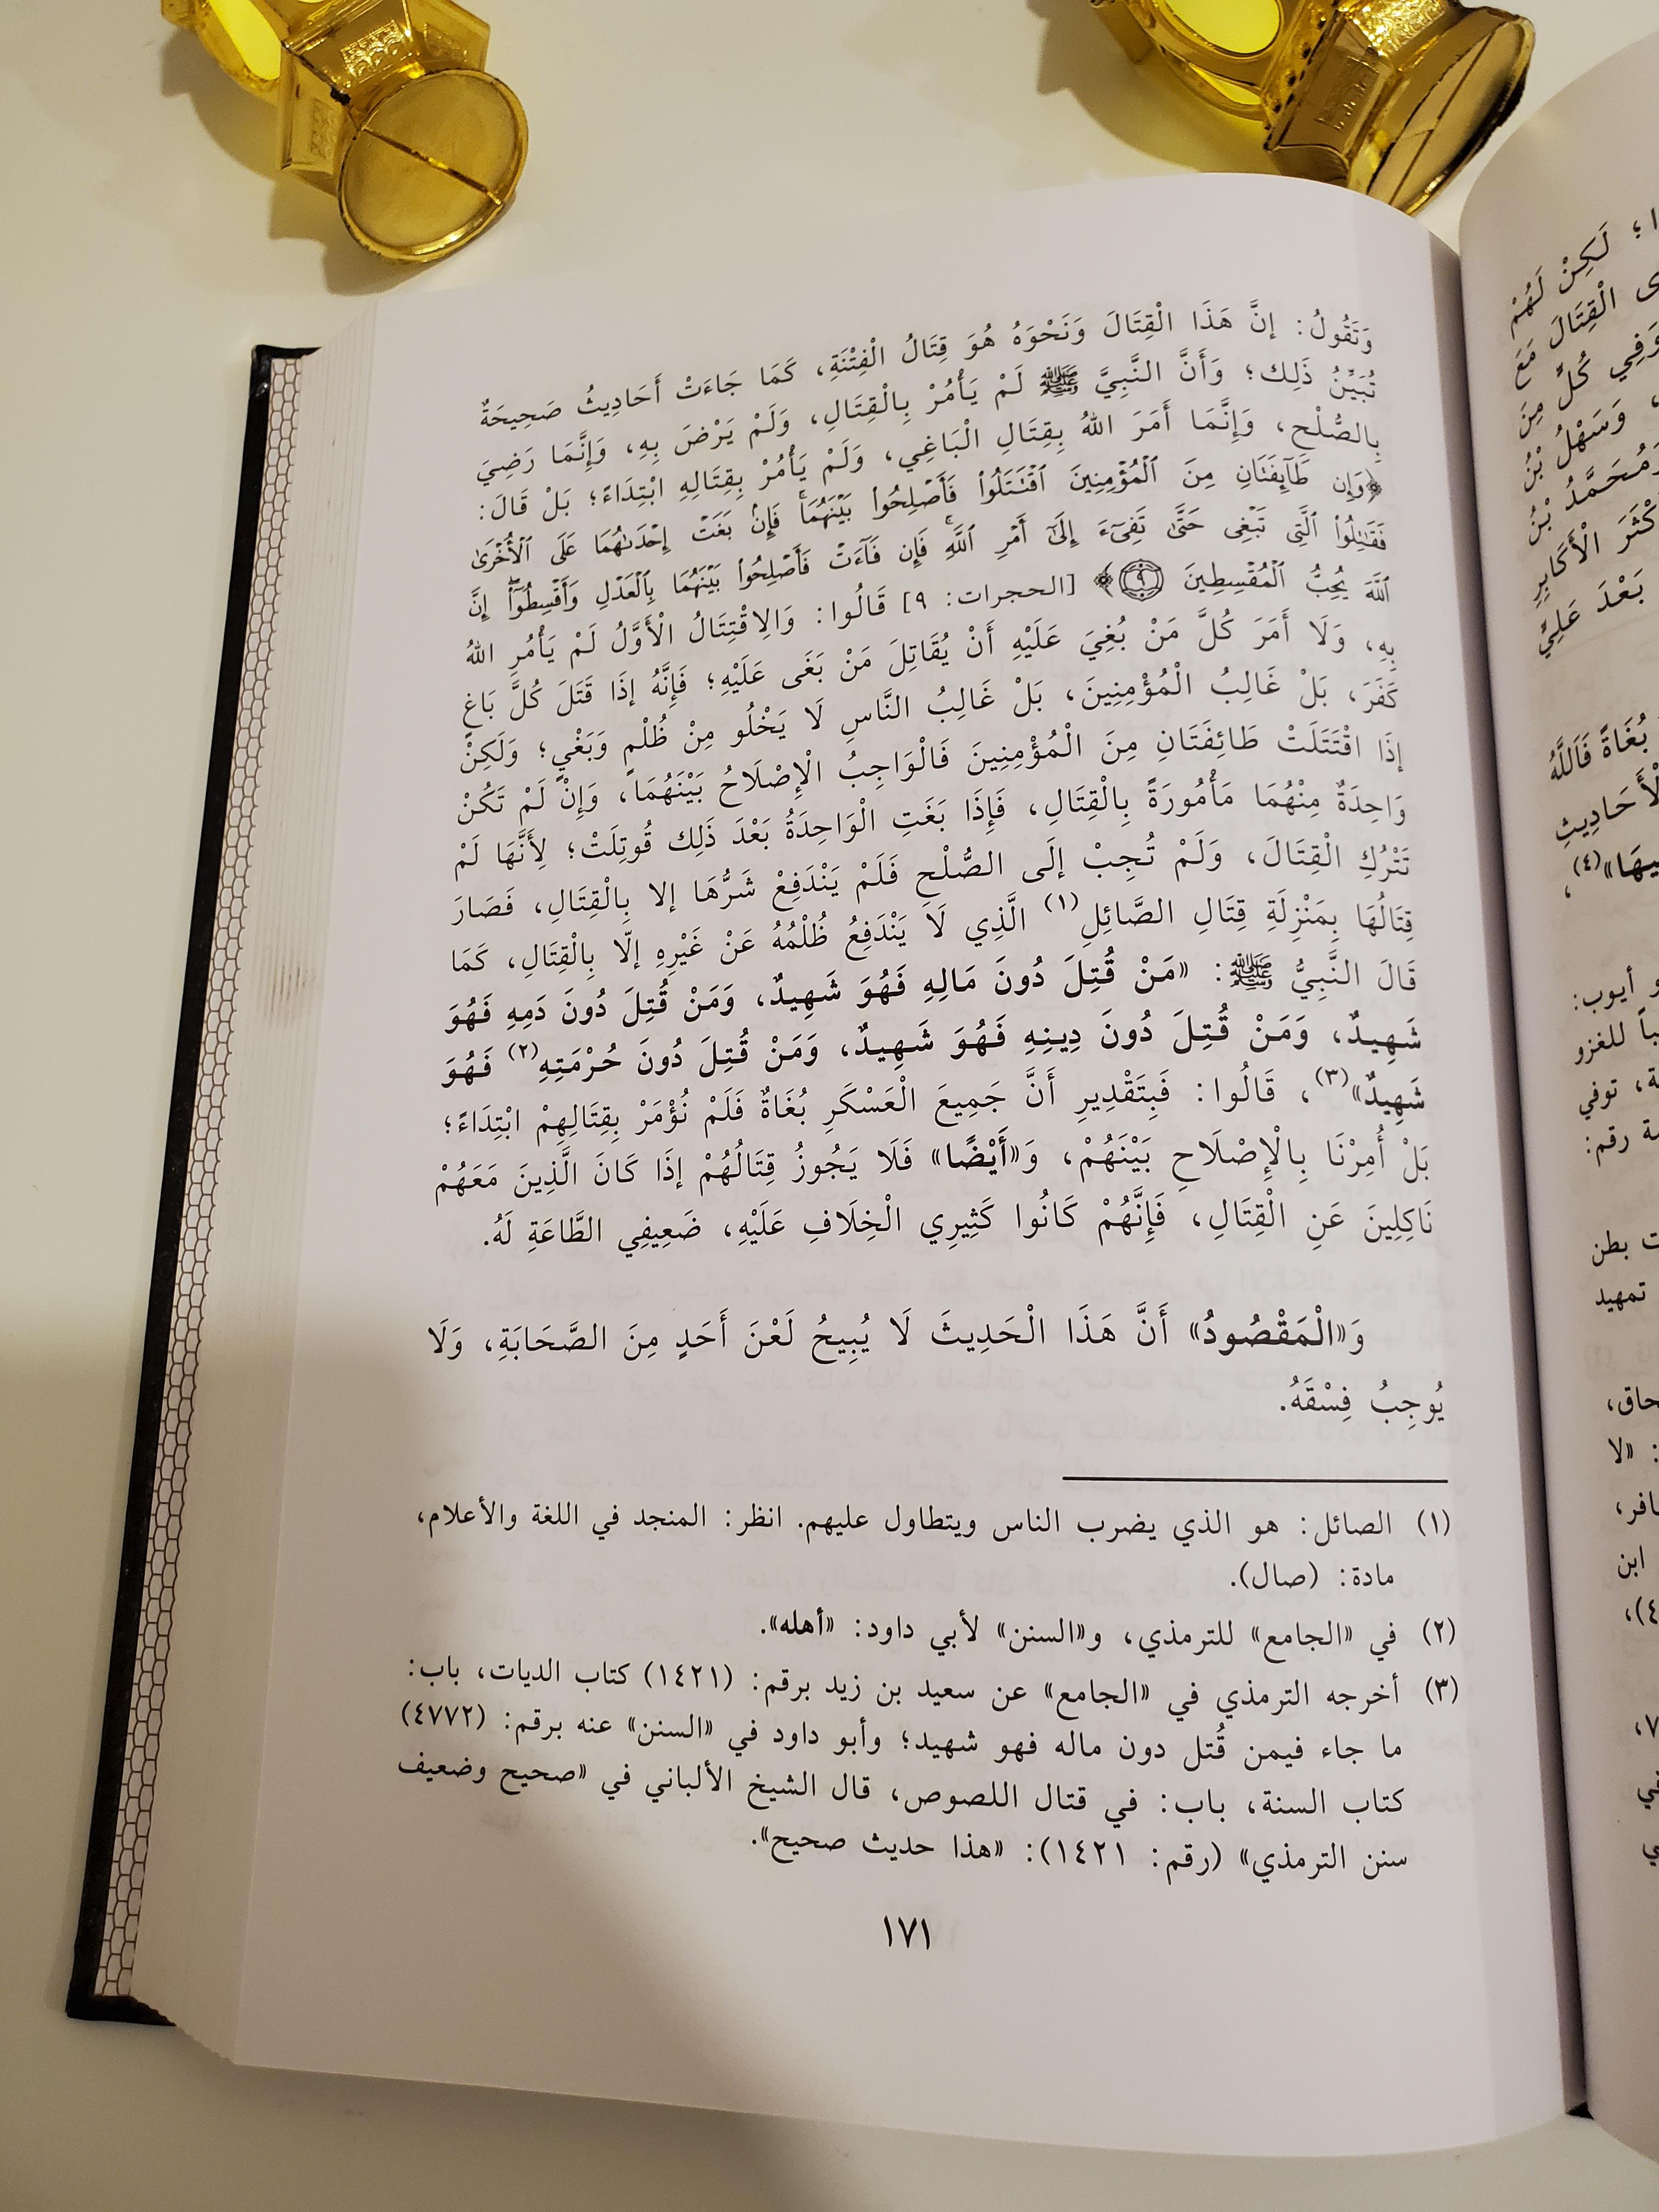 وَنَقُولُ: إنَّ هَذَا الْقِتَالَ وَنَحْوَهُ هُوَ قِتَالُ الْفِتْنَةِ، كَمَا جَاءَتْ أَحَادِيثُ صَحِيحَةٌ
تُبَيِّنُ ذَلِك؛ وَأَنَّ النَّبِيَّ ﷺ لَمْ يَأْمُرْ بِالْقِتَالِ، وَلَمْ يَرْضَ بِهِ، وَإِنَّمَا رَضِيَ
بِالصُّلْحِ، وَإِنَّمَا أَمَرَ اللهُ بِقِتَالِ الْبَاغِي، وَلَمْ يَأْمُرْ بِقِتَالِهِ ابْتِدَاءً؛ بَلْ قَالَ:
﴿وَإِن طَآئِفَتَانِ مِنَ ٱلْمُؤْمِنِينَ ٱقْتَتَلُوا۟ فَأَصْلِحُوا۟ بَيْنَهُمَا ۖ فَإِنۢ بَغَتْ إِحْدَىٰهُمَا عَلَى ٱلْأُخْرَىٰ
فَقَٰتِلُوا۟ ٱلَّتِى تَبْغِى حَتَّىٰ تَفِىٓءَ إِلَىٰٓ أَمْرِ ٱللَّهِ ۚ فَإِن فَآءَتْ فَأَصْلِحُوا۟ بَيْنَهُمَا بِٱلْعَدْلِ وَأَقْسِطُوٓا۟ ۖ إِنَّ
ٱللَّهَ يُحِبُّ ٱلْمُقْسِطِينَ ٩﴾ [الحجرات: ٩] قَالُوا: وَالِاقْتِتَالُ الْأَوَّلُ لَمْ يَأْمُرِ اللهُ
بِهِ، وَلَا أَمَرَ كُلَّ مَنْ بُغِيَ عَلَيْهِ أَنْ يُقَاتِلَ مَنْ بَغَى عَلَيْهِ؛ فَإِنَّهُ إذَا قَتَلَ كُلَّ بَاغٍ
كَفَرَ، بَلْ غَالِبُ الْمُؤْمِنِينَ، بَلْ غَالِبُ النَّاسِ لَا يَخْلُو مِنْ ظُلْمٍ وَبَغْيٍ؛ وَلَكِنْ
إذَا اقْتَتَلَتْ طَائِفَتَانِ مِنَ الْمُؤْمِنِينَ فَالْوَاجِبُ الْإِصْلَاحُ بَيْنَهُمَا، وَإِنْ لَمْ تَكُنْ
وَاحِدَةٌ مِنْهُمَا مَأْمُورَةً بِالْقِتَالِ، فَإِذَا بَغَتِ الْوَاحِدَةُ بَعْدَ ذَلِك قُوتِلَتْ؛ لِأَنَّهَا لَمْ
تَتْرُكِ الْقِتَالَ، وَلَمْ تُجِبْ إلَى الصُّلْحِ فَلَمْ يَنْدَفِعْ شَرُّهَا إلا بِالْقِتَالِ، فَصَارَ
قِتَالُهَا بِمَنْزِلَةِ قِتَالِ الصَّائِلِ(١) الَّذِي لَا يَنْدَفِعُ ظُلْمُهُ عَنْ غَيْرِهِ إلَّا بِالْقِتَالِ، كَمَا
قَالَ النَّبِيُّ ﷺ: «مَنْ قُتِلَ دُونَ مَالِهِ فَهُوَ شَهِيدٌ، وَمَنْ قُتِلَ دُونَ دَمِهِ فَهُوَ
شَهِيدٌ، وَمَنْ قُتِلَ دُونَ دِينِهِ فَهُوَ شَهِيدٌ، وَمَنْ قُتِلَ دُونَ حُرْمَتِهِ(٢) فَهُوَ
شَهِيدٌ»(٣)، قَالُوا: فَبِتَقْدِيرِ أَنَّ جَمِيعَ الْعَسْكَرِ بُغَاةٌ فَلَمْ نُؤْمَرْ بِقِتَالِهِمْ ابْتِدَاءً؛
بَلْ أُمِرْنَا بِالْإِصْلَاحِ بَيْنَهُمْ، وَ«أَيْضًا» فَلَا يَجُوزُ قِتَالُهُمْ إذَا كَانَ الَّذِينَ مَعَهُمْ
نَاكِلِينَ عَنِ الْقِتَالِ، فَإِنَّهُمْ كَانُوا كَثِيرِي الْخِلَافِ عَلَيْهِ، ضَعِيفِي الطَّاعَةِ لَهُ.
وَ«الْمَقْصُودُ» أَنَّ هَذَا الْحَدِيثَ لَا يُبِيحُ لَعْنَ أَحَدٍ مِنَ الصَّحَابَةِ، وَلَا
يُوجِبُ فِسْقَهُ.
(١) الصائل: هو الذي يضرب الناس ويتطاول عليهم. انظر: المنجد في اللغة والأعلام،
مادة: (صال).
(٢) في «الجامع» للترمذي، و«السنن» لأبي داود: «أهله».
(٣) أخرجه الترمذي في «الجامع» عن سعيد بن زيد برقم: (١٤٢١) كتاب الديات، باب:
ما جاء فيمن قُتل دون ماله فهو شهيد؛ وأبو داود في «السنن» عنه برقم: (٤٧٧٢)
كتاب السنة، باب: في قتال اللصوص، قال الشيخ الألباني في «صحيح وضعيف
سنن الترمذي» (رقم: ١٤٢١): «هذا حديث صحيح».
١٧١